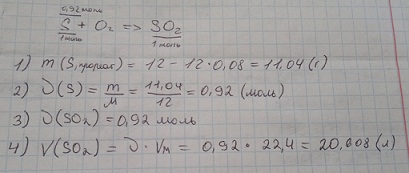 0,92 моль
S + O₂ => SO₂
1 моль 1 моль
1) m(S, прореаг) = 12 - 12·0,08 = 11,04 (г)
2) ν(S) = m/M = 11,04/12 = 0,92 (моль)
3) ν(SO₂) = 0,92 моль
4) V(SO₂) = ν · Vм = 0,92 · 22,4 = 20,608 (л)